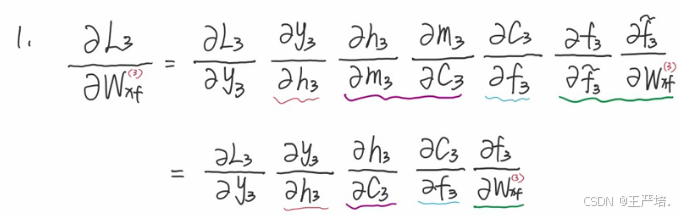 1. ∂L₃/∂W_xf^(3) = ∂L₃/∂y₃ ∂y₃/∂h₃ ∂h₃/∂m₃ ∂m₃/∂C₃ ∂C₃/∂f₃ ∂f₃/∂f̃₃ ∂f̃₃/∂W_xf^(3)
= ∂L₃/∂y₃ ∂y₃/∂h₃ ∂h₃/∂C₃ ∂C₃/∂f₃ ∂f₃/∂W_xf^(3)
CSDN @王严培.